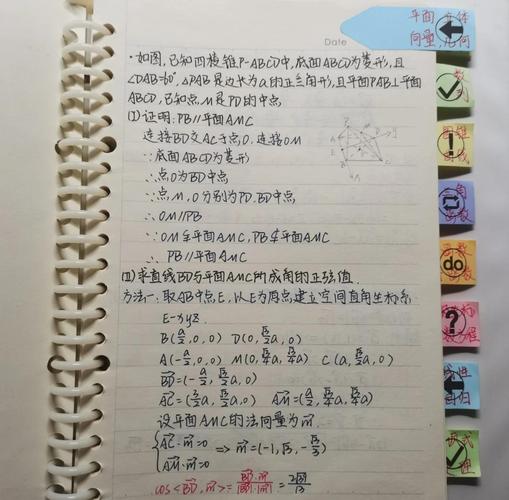 Date
平面 立体
向量 几何
·如图,已知四棱锥P-ABCD中,底面ABCD为菱形,且
∠DAB=60°,△PAB是边长为a的正三角形,且平面PAB⊥平面
ABCD,已知点M是PD的中点
(I)证明:PB∥平面AMC
连接BD交AC于点O,连接OM
∵底面ABCD为菱形
∴点O为BD中点
∵点M,O分别为PD.BD中点
∴OM∥PB
∵OM⊊平面AMC,PB⊄平面AMC
∴PB∥平面AMC
(II)求直线BD与平面AMC所成角的正弦值.
方法一.取AB中点E,以E为原点,建立空间直角坐标系
E-xyz.
B(a/2,0,0) D(0,√3/2a,0)
A(-a/2,0,0) M(0,√3/4a,√3/4a) C(a,√3/2a,0)
BD=(-a/2,√3/2a,0)
AC=(3/2a,√3/2a,0) AM=(a/2,√3/4a,√3/4a)
设平面AMC的法向量为m
{AC·m=0
AM·m=0 ⇒ m=(-1,√3,-√3/3)
cos<BD,m>=BD·m/|BD||m|=2√39/13
do
!
?